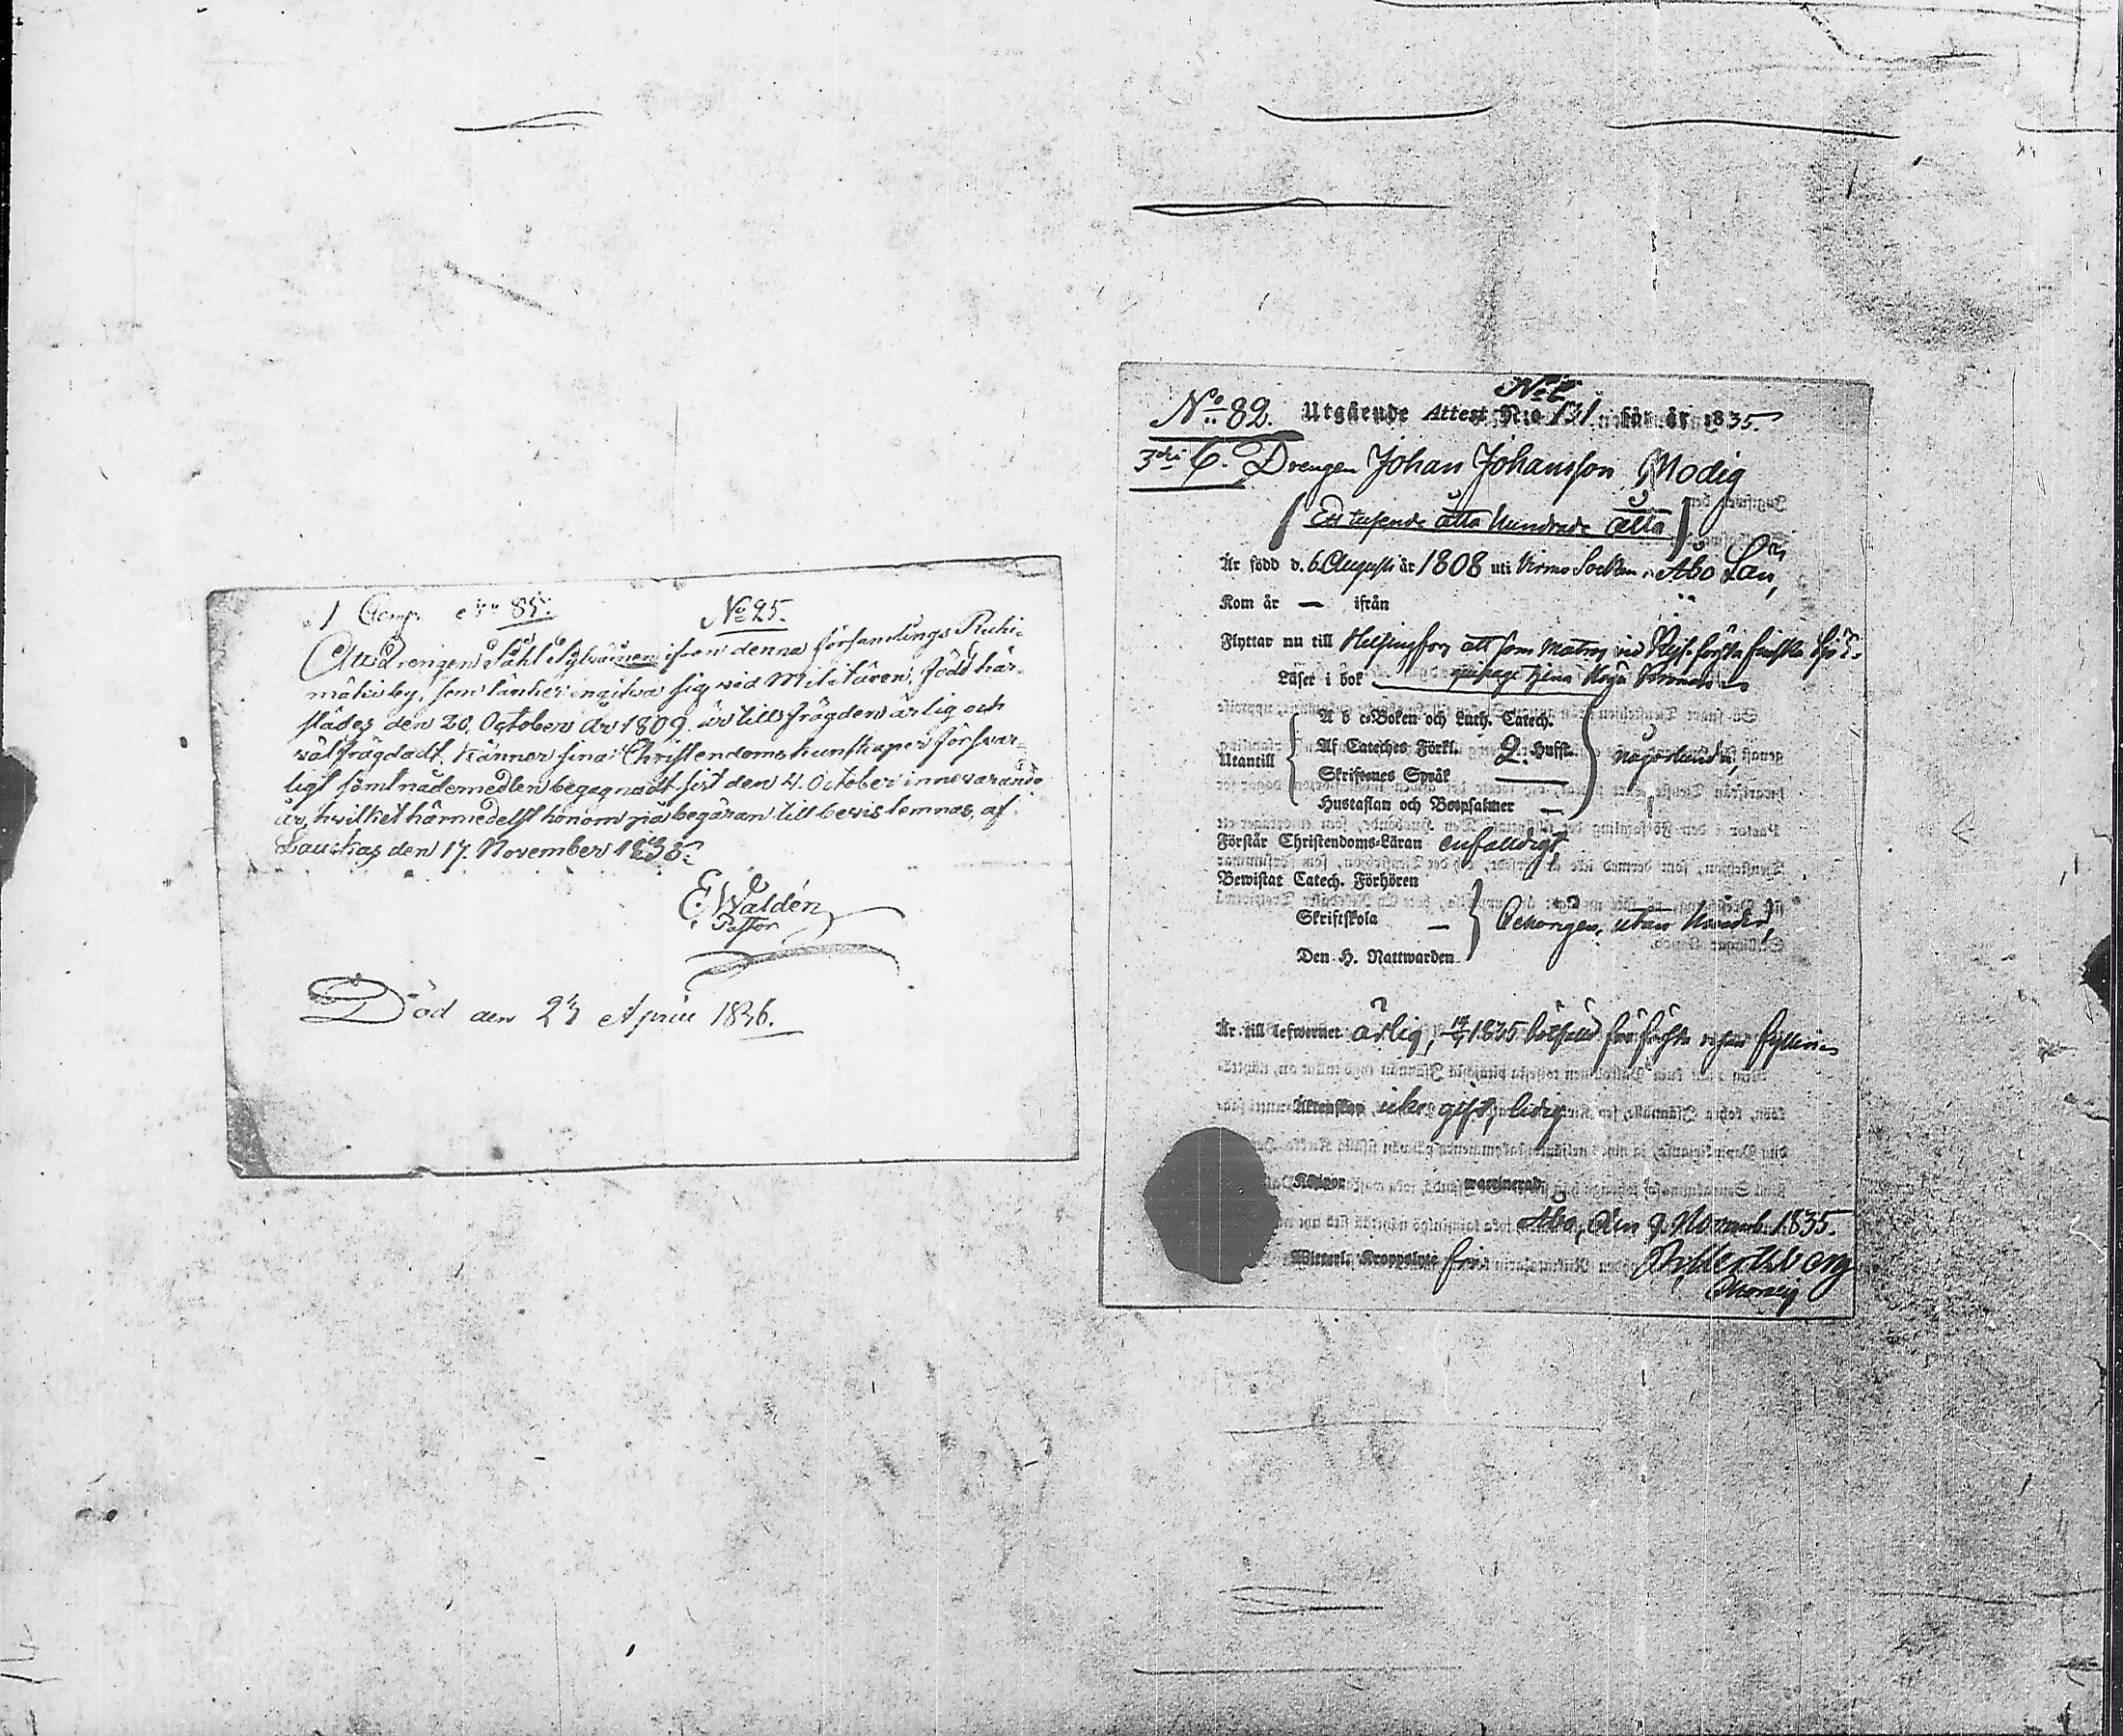 1 Comp. No 85. No 25.
Att Drengen Påhl Sylvänen ifrån denna församlings Ruhi-
mäki by, som tänker engifva sig vid Militären, född här-
städes den 20. October år 1809. är till frägden ärlig och
välfrägdadt. Känner sina Christendoms kunskaper försvar-
ligt samt nådemedlen begagnadt sist den 4. October innevarande
år, hvilket härmedelst honom på begäran till bevis lemnas, af
Lauckas den 17. November 1835.
E. Waldén
Pastor
Död den 23 April 1836.
No 82. Utgående Attest N:o 131. för år 1835.
3die C. Drengen Johan Johansson Modig
(Ett tusende åtta hundrade åtta)
Är född d. 6 Augusti år 1808 uti Virmo Socken, Åbo Län,
Kom år — ifrån
Flyttar nu till Helsingfors att som Matros vid Kejs. första finska Sjö E-
quipage tjena Höga Kronan
Läser i bok
Utantill
A b c-Boken och Luth. Catech.
Af Cateches Förkl. 2. Hufst.
Skriftenes Språk —
Hustaflan och Botpsalmer —
någorlunda,
Förstår Christendoms-Läran enfaldigt
Bewistat Catech. Förhören
Skriftskola —
Den H. Nattwarden
utan hinder,
Är till lefwernet ärlig, 1835 första resan fylleri
Äktenskap icke gift, ledig
Koppor waccinerad
Åbo, den 9. Novemb. 1835.
Wittert. Kroppslyte fri